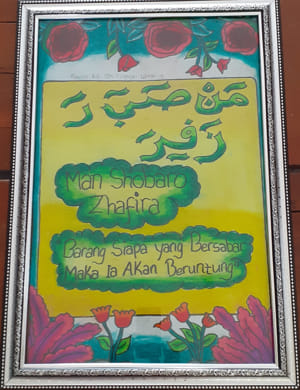 مَنْ صَبَ رَ
زَفِرَ
Man Shobaro
Zhafira
"Barang Siapa yang Bersabar
Maka Ia Akan Beruntung"